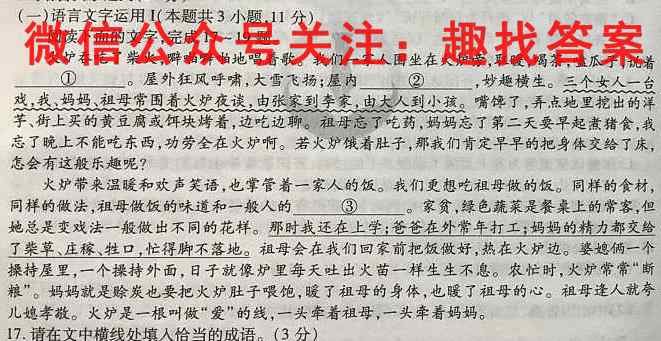 (一)语言文字运用Ⅰ(本题共3小题,11分)
微信公众号关注：趣找答案
阅读下面的文字,完成17~19题。
火炉吞吃了柴火,噼噼啪啪地唱着歌。我们一家人围坐在火炉旁,取暖,喝茶,嗑瓜子,说着
①。屋外狂风呼啸,大雪飞扬;屋内②,妙趣横生。三个女人一台
戏,我、妈妈、祖母常围着火炉夜谈,由张家到李家,由大人到小孩。嘴馋了,弄点地里挖出的洋
芋、街上买的黄豆腐或饵块烤着,边吃边聊。祖母忘了吃药,妈妈忘了第二天要早起煮猪食,我
忘了晚上不能吃东西,功劳全在火炉啊。若火炉饿着肚子,那我们肯定早早的把身体交给了床,
怎会有这般乐趣呢?
火炉带来温暖和欢声笑语,也掌管着一家人的饭。我们更想吃祖母做的饭。同样的食材,
同样的做法,祖母做饭的味道和一般人的③。家贫,绿色蔬菜是餐桌上的常客,但
她总是变戏法一般做出不同的花样。那时我还在上学;爸爸在外常年打工;妈妈的精力都交给
了柴草、庄稼、牲口,忙得脚不落地。祖母会在我们回家前把饭做好,热在火炉边。婆媳俩一个
操持屋里,一个操持外面,日子就像炉里每天吐出火苗一样生生不息。农忙时,火炉常常“断
粮”。妈妈就是赊炭也要把火炉肚子喂饱,暖了祖母的身体,也暖了祖母的心。祖母逢人就夸
儿媳孝敬。火炉是一根叫做“爱”的线,一头牵着祖母,一头牵着妈妈。
17.请在文中横线处填入恰当的成语。(3分)